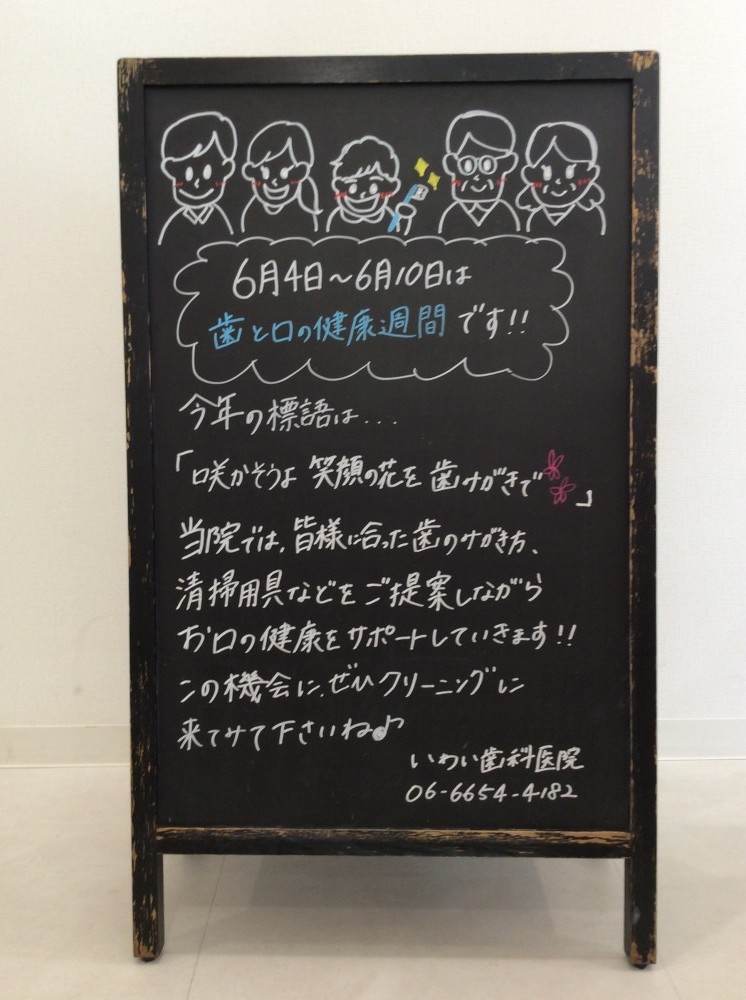 6月4日～6月10日は
歯と口の健康週間です!!
今年の標語は...
「咲かそうよ 笑顔の花を 歯みがきで」
当院では、皆様に合った歯のみがき方、
清掃用具などをご提案しながら
お口の健康をサポートしていきます!!
この機会に、ぜひクリーニングに
来てみて下さいね♪
いわい歯科医院
06-6654-4182